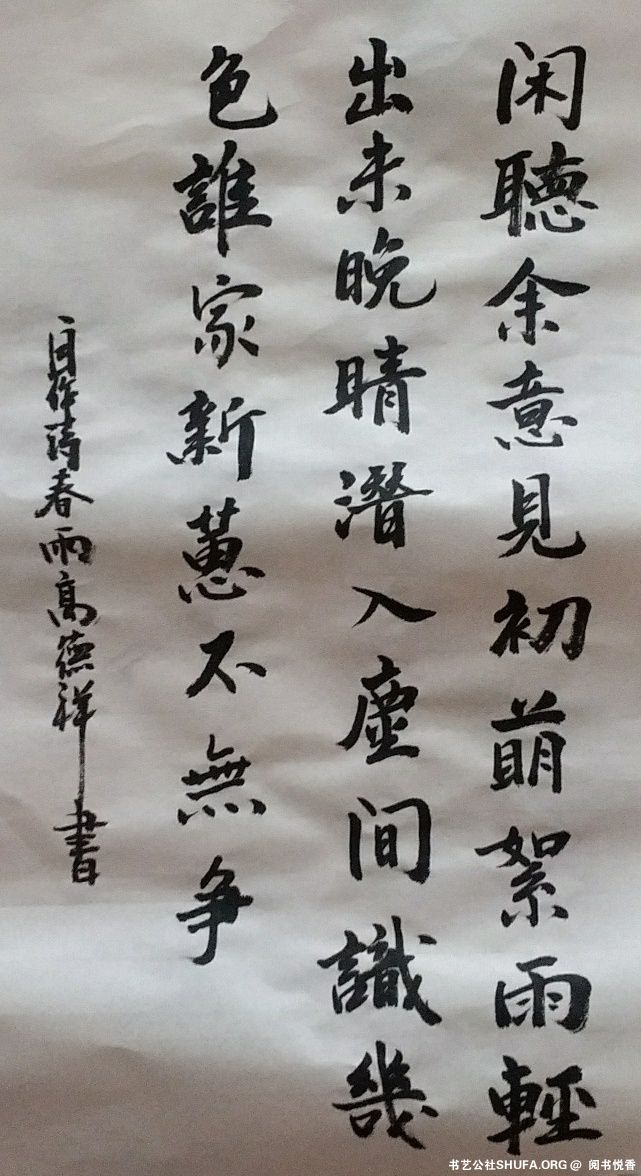 闲聽余意見初萌絮雨輕
出未晚晴潛入塵间識幾
色誰家新蕙不無争
自作诗春雨高德祥书
书艺公社SHUFA.ORG @ 阅书悦香